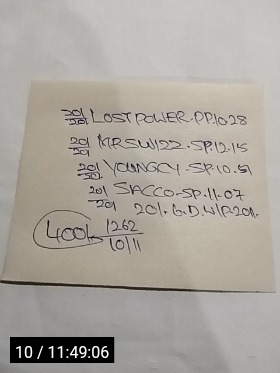 20/20/ LOSTPOWER.PP.10.28
20/20/ MRSWIZZ.SP.12.15
20/20/ YOUNGCY.SP.10.51
20/20/ SACCO-SP.11.07
20/. G.D.W/P.20/.
400/. 1262
10/11
10 / 11:49:06